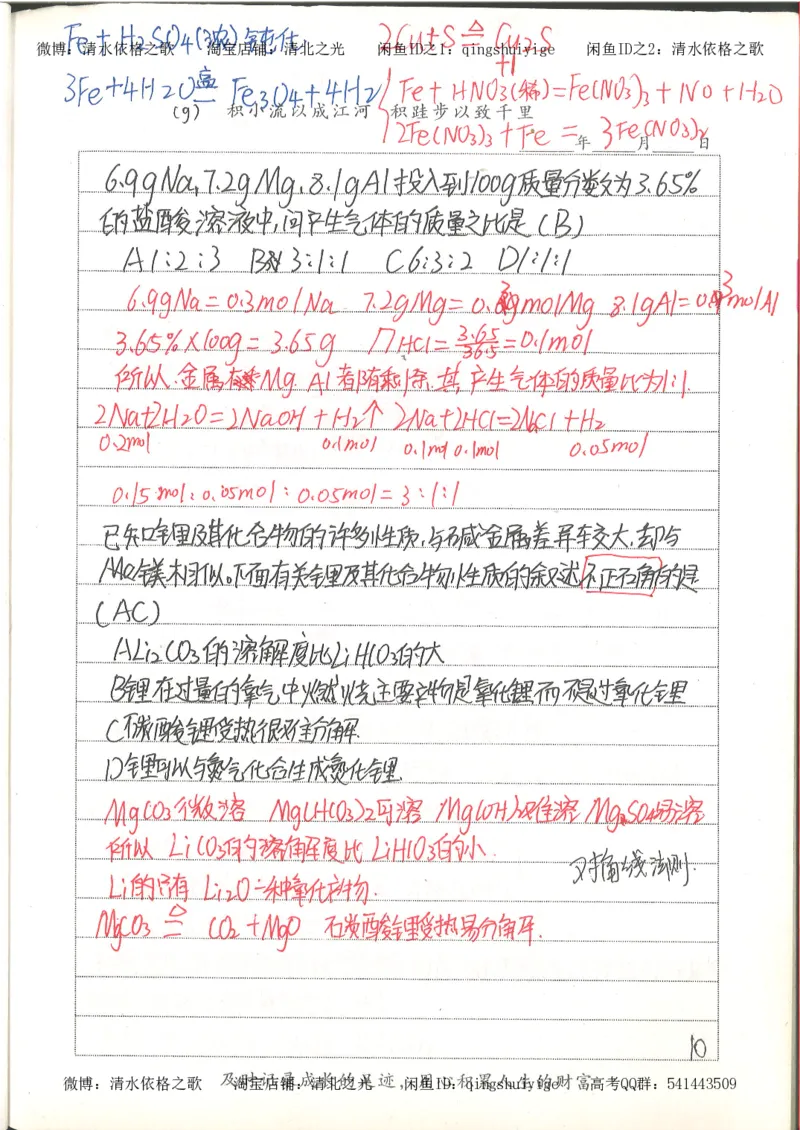 Fe+H2SO4(浓) 钝化
2Cu+S≜Cu2S
+1
微博：清水依格之歌 淘宝店铺：清北之光 闲鱼ID之1：qingshuiyige 闲鱼ID之2：清水依格之歌
3Fe+4H2O 高温 Fe3O4+4H2
(g)
Fe+HNO3(稀)=Fe(NO3)3+NO+H2O
积小流以成江河 积跬步以致千里
2Fe(NO3)3+Fe=3Fe(NO3)2
年 月 日
6.9gNa,7.2gMg,8.1gAl投入到100g质量分数为3.65%
的盐酸溶液中,问产生气体的质量之比是(B)
A1:2:3 B3:1:1 C6:3:2 D1:1:1
6.9gNa=0.3molNa 7.2gMg=0.3molMg 8.1gAl=0.3molAl
3.65%×100g=3.65g nHCl=3.65/36.5=0.1mol
所以.金属Mg.Al都有剩余,其产生气体的质量比为1:1.
2Na+2H2O=2NaOH+H2↑ 2Na+2HCl=2NaCl+H2
0.2mol 0.1mol 0.1mol 0.1mol 0.05mol
0.15mol:0.05mol:0.05mol=3:1:1
已知锂及其化合物的许多性质,与碱金属差异较大,却与
镁相似。下面有关锂及其化合物性质的叙述不正确的是
(AC)
ALi2CO3的溶解度比LiHCO3的大
B锂在过量的氧气中燃烧主要产物是氧化锂而不是过氧化锂
C碳酸锂受热很难分解.
D锂可以与氮气化合生成氮化锂
MgCO3微溶 Mg(HCO3)2可溶 Mg(OH)2难溶 MgSO4易溶
所以LiCO3的溶解度比LiHCO3的小.
对角线法则.
Li的只有Li2O一种氧化产物.
MgCO3≜CO2+MgO 碳酸锂受热易分解.
10
及时记录成长的足迹，用心积累人生的财富
微博：清水依格之歌 淘宝店铺：清北之光 闲鱼ID：qingshuiyige 高考QQ群：541443509